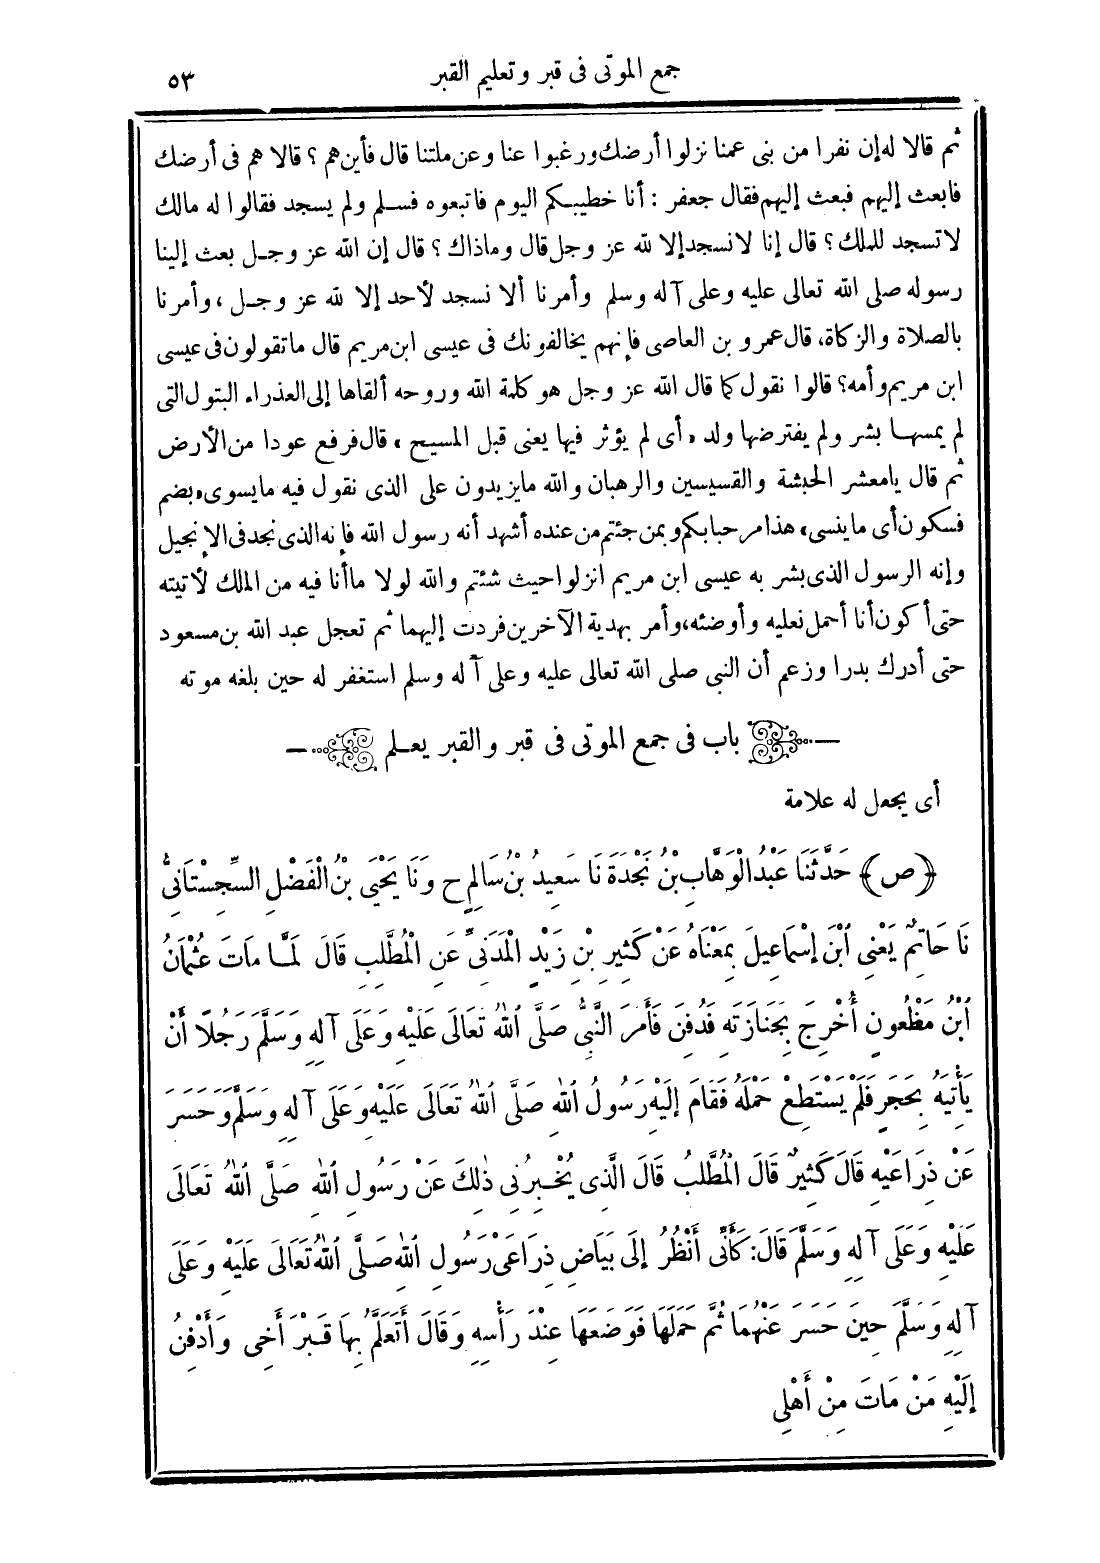 جمع الموتى فى قبر وتعليم القبر
٥٣
ثم قالا له إن نفرا من بنى عمنا نزلوا أرضك ورغبوا عنا وعن ملتنا قال فأين هم ؟ قالا هم فى أرضك
فابعث إليهم فبعث إليهم فقال جعفر : أنا خطيبكم اليوم فاتبعوه فسلم ولم يسجد فقالوا له مالك
لا تسجد للملك ؟ قال إنا لا نسجد إلا لله عز وجل قال وماذاك ؟ قال إن الله عز وجل بعث إلينا
رسوله صلى الله تعالى عليه وعلى آله وسلم وأمرنا ألا نسجد لأحد إلا لله عز وجل ، وأمرنا
بالصلاة والزكاة، قال عمرو بن العاصى فإنهم يخالفونك فى عيسى ابن مريم قال ماتقولون فى عيسى
ابن مريم وأمه؟ قالوا نقول كما قال الله عز وجل هو كلمة الله وروحه ألقاها إلى العذراء البتول التى
لم يمسها بشر ولم يفترضها ولد «أى لم يؤثر فيها يعنى قبل المسيح» قال فرفع عودا من الأرض
ثم قال يامعشر الحبشة والقسيسين والرهبان والله مايزيدون على الذى نقول فيه مايسوى «بضم
فسكون أى ماينسى» هذا مرحبا بكم وبمن جئتم من عنده أشهد أنه رسول الله فإنه الذى نجد فى الإنجيل
وإنه الرسول الذى بشر به عيسى ابن مريم انزلوا حيث شئتم والله لولا ما أنا فيه من الملك لأتيته
حتى أكون أنا أحمل نعليه وأوضئه، وأمر بهدية الآخرين فردت إليهما ثم تعجل عبد الله بن مسعود
حتى أدرك بدرا وزعم أن النبى صلى الله تعالى عليه وعلى آله وسلم استغفر له حين بلغه موته
باب فى جمع الموتى فى قبر والقبر يعلم
أى يجعل له علامة
﴿ص﴾ حَدَّثَنَا عَبْدُ الْوَهَّابِ بْنُ نَجْدَةَ نَا سَعِيدُ بْنُ سَالِمٍ ح وَنَا يَحْيَى بْنُ الْفَضْلِ السِّجِسْتَانِىُّ
نَا حَاتِمٌ يَعْنِى ابْنَ إِسْمَاعِيلَ بِمَعْنَاهُ عَنْ كَثِيرِ بْنِ زَيْدٍ الْمَدَنِىِّ عَنِ الْمُطَّلِبِ قَالَ لَمَّا مَاتَ عُثْمَانُ
ابْنُ مَظْعُونٍ أُخْرِجَ بِجَنَازَتِهِ فَدُفِنَ فَأَمَرَ النَّبِىُّ صَلَّى اللهُ تَعَالَى عَلَيْهِ وَعَلَى آلِهِ وَسَلَّمَ رَجُلًا أَنْ
يَأْتِيَهُ بِحَجَرٍ فَلَمْ يَسْتَطِعْ حَمْلَهُ فَقَامَ إِلَيْهِ رَسُولُ اللهِ صَلَّى اللهُ تَعَالَى عَلَيْهِ وَعَلَى آلِهِ وَسَلَّمَ وَحَسَرَ
عَنْ ذِرَاعَيْهِ قَالَ كَثِيرٌ قَالَ الْمُطَّلِبُ قَالَ الَّذِى يُخْبِرُنِى ذٰلِكَ عَنْ رَسُولِ اللهِ صَلَّى اللهُ تَعَالَى
عَلَيْهِ وَعَلَى آلِهِ وَسَلَّمَ قَالَ: كَأَنِّى أَنْظُرُ إِلَى بَيَاضِ ذِرَاعَىْ رَسُولِ اللهِ صَلَّى اللهُ تَعَالَى عَلَيْهِ وَعَلَى
آلِهِ وَسَلَّمَ حِينَ حَسَرَ عَنْهُمَا ثُمَّ حَمَلَهَا فَوَضَعَهَا عِنْدَ رَأْسِهِ وَقَالَ أَتَعَلَّمُ بِهَا قَبْرَ أَخِى وَأَدْفِنُ
إِلَيْهِ مَنْ مَاتَ مِنْ أَهْلِى